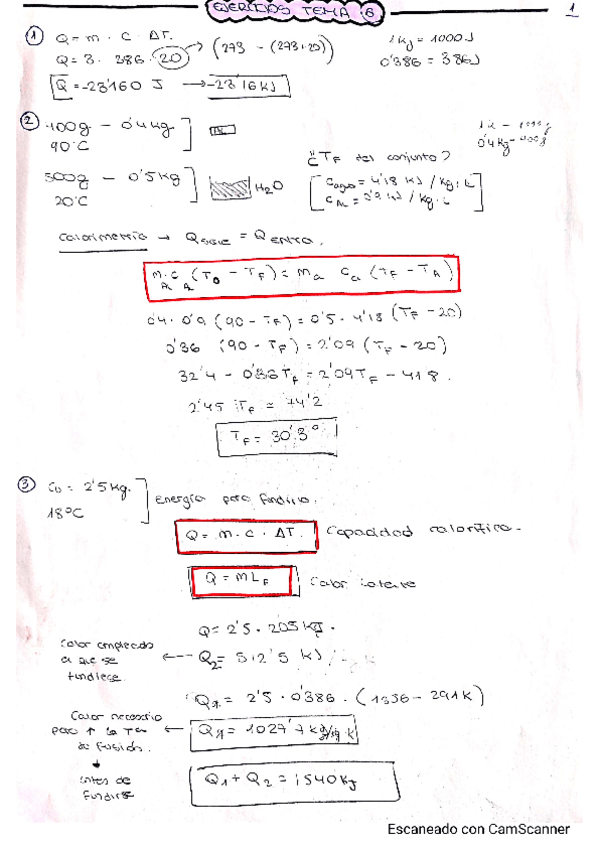 EJERCICIOS TEMA 6
1
① Q = m · C · ΔT.
Q = 3 · 386 · 20 → (293 - (273+20))
Q = -23'160 J → -23'16 KJ
1 kJ = 1000 J
0'386 = 386 J
② 400g - 0'4 kg
90°C
Al
500g - 0'5 kg
20°C
H2O
0'4 kg - 400g
¿TF del conjunto?
Cagua = 4'18 KJ / kg · k
CAl = 0'9 KJ / kg · k
Calorimetría → Qsale = Qentra.
mA · CA (T0 - TF) = ma Ca (TF - TA)
0'4 · 0'9 (90 - TF) = 0'5 · 4'18 (TF - 20)
0'36 (90 - TF) = 2'09 (TF - 20)
32'4 - 0'36 TF = 2'09 TF - 41'8.
2'45 TF = 74'2
TF = 30'3°
③ Cu = 2'5 kg.
18°C
Energía para fundirlo.
Q = m · C · ΔT. Capacidad calorífica.
Q = m LF Calor latente
Q = 2'5 · 205 KJ.
Calor empleado
a que se
fundiese.
← Q2 = 512'5 KJ
Q1 = 2'5 · 0'386 · (1356 - 291K)
Calor necesario
para ↑ la Tª
de fusión.
← Q1 = 1027'7
↓
antes de
fundirse
Q1 + Q2 = 1540 KJ
Escaneado con CamScanner